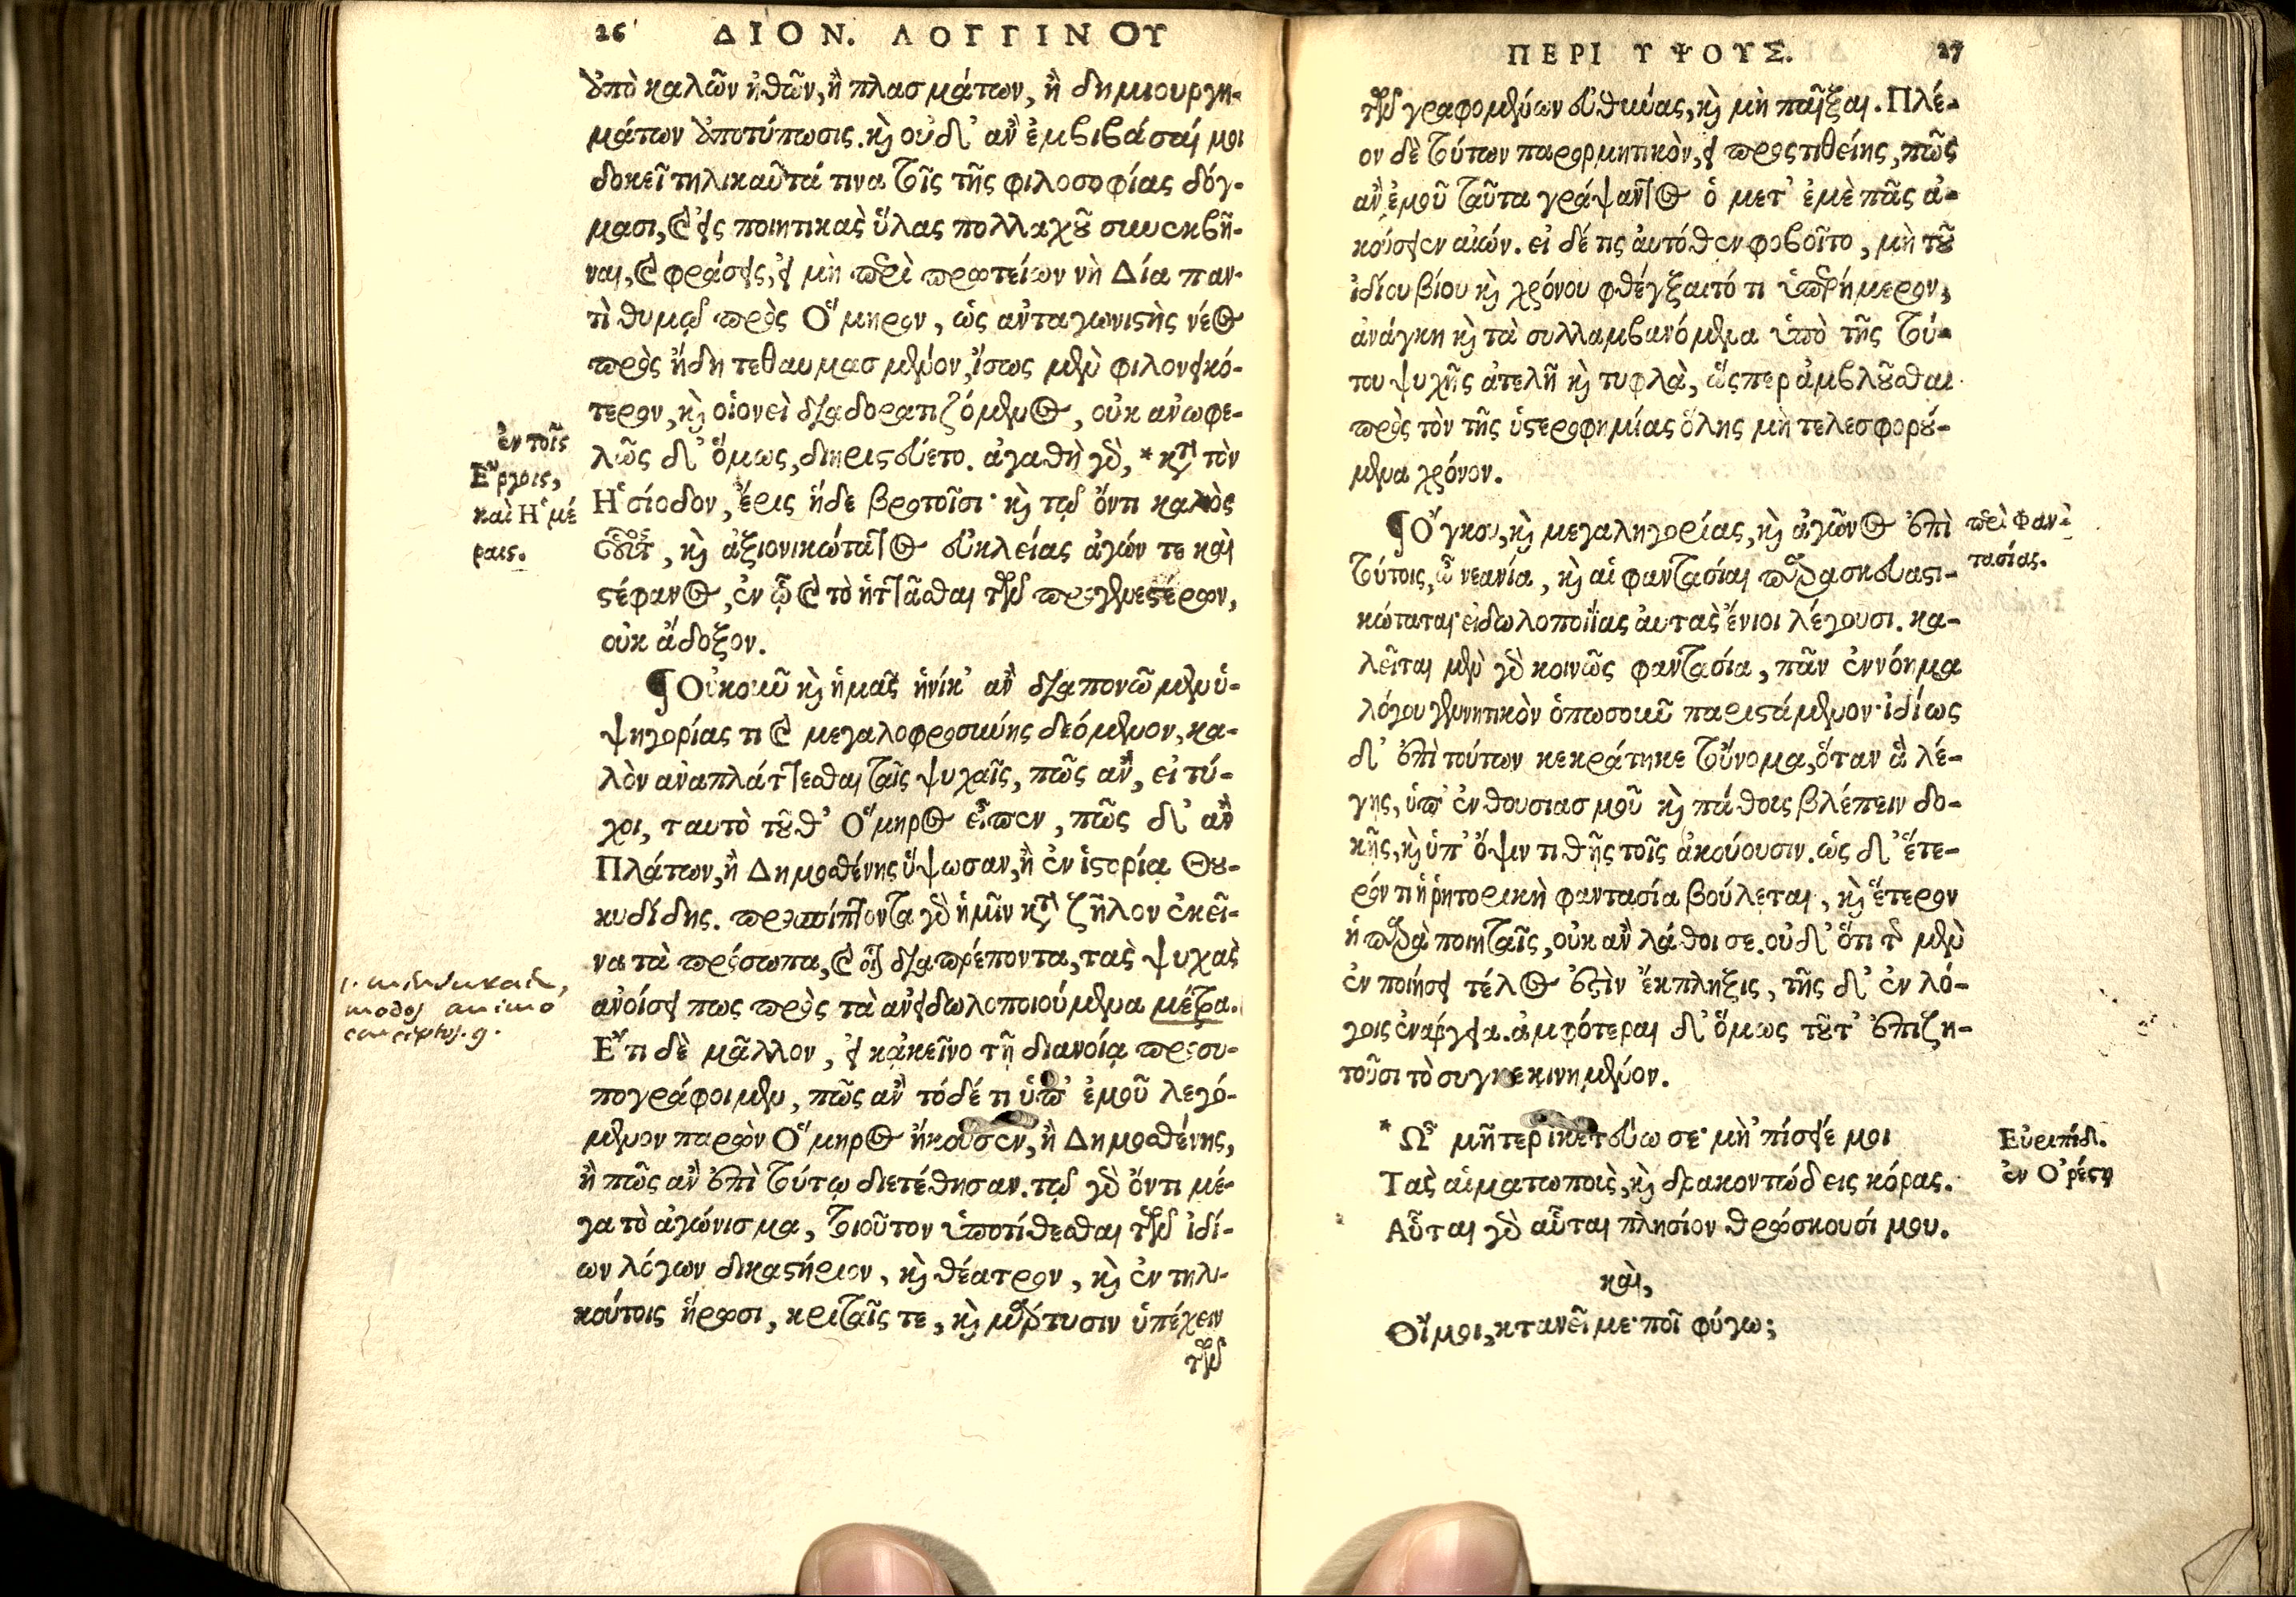 26 ΔΙΟΝ. ΛΟΓΓΙΝΟΥ
ἀπὸ καλῶν ἠθῶν, ἢ πλασμάτων, ἢ δημιουργη-
μάτων ἀποτύπωσις. καὶ οὐδ' ἂν ἐμβιβάσαι μοι
δοκεῖ τηλικαῦτά τινα τοῖς τῆς φιλοσοφίας δόγ-
μασι, καὶ εἰς ποιητικὰς ὕλας πολλαχοῦ συνεκβῆ-
ναι, καὶ φράσεις, εἰ μὴ περὶ πρωτείων νὴ Δία παν-
τὶ θυμῷ πρὸς Ὅμηρον, ὡς ἀνταγωνιστὴς νέος
πρὸς ἤδη τεθαυμασμένον, ἴσως μὲν φιλονεικό-
τερον, καὶ οἱονεὶ διαδορατιζόμενος, οὐκ ἀνωφε-
λῶς δ' ὅμως, διηριστεύετο. ἀγαθὴ γὰρ, * κατὰ τὸν
Ἡσίοδον, ἔρις ἥδε βροτοῖσι· καὶ τῷ ὄντι καλὸς
οὗτος, καὶ ἀξιονικώτατος εὐκλείας ἀγών τε καὶ
στέφανος, ἐν ᾧ καὶ τὸ ἡττᾶσθαι τῶν προγενεστέρων,
οὐκ ἄδοξον.
ἐν τοῖς
Ἔργοις,
καὶ Ἡμέ
ραις.
¶ Οὐκοῦν καὶ ἡμᾶς ἡνίκ' ἂν διαπονῶμεν ὑ-
ψηγορίας τι καὶ μεγαλοφροσύνης δεόμενον, κα-
λὸν ἀναπλάττεσθαι ταῖς ψυχαῖς, πῶς ἂν, εἰ τύ-
χοι, ταυτὸ τοῦθ' Ὅμηρος εἶπεν, πῶς δ' ἂν
Πλάτων, ἢ Δημοσθένης ὕψωσαν, ἢ ἐν ἱστορίᾳ Θου-
κυδίδης. προσπίπτοντα γὰρ ἡμῖν κατὰ ζῆλον ἐκεῖ-
να τὰ πρόσωπα, καὶ οἷον διαπρέποντα, τὰς ψυχὰς
ἀνοίσει πως πρὸς τὰ ἀνειδωλοποιούμενα μέτρα.
Ἔτι δὲ μᾶλλον, εἰ κἀκεῖνο τῇ διανοίᾳ προσυ-
πογράφοιμεν, πῶς ἂν τόδε τι ὑπ' ἐμοῦ λεγό-
μενον παρὼν Ὅμηρος ἤκουσεν, ἢ Δημοσθένης,
ἢ πῶς ἂν ἐπὶ τούτῳ διετέθησαν. τῷ γὰρ ὄντι μέ-
γα τὸ ἀγώνισμα, τοιοῦτον ὑποτίθεσθαι τῶν ἰδί-
ων λόγων δικαστήριον, καὶ θέατρον, καὶ ἐν τηλι-
κούτοις ἥρωσι, κριταῖς τε, καὶ μάρτυσιν ὑπέχειν
τῶν
ΠΕΡΙ ΥΨΟΥΣ. 27
τῶν γραφομένων εὐθύνας, καὶ μὴ παῖξαι. Πλέ-
ον δὲ τούτων παρορμητικὸν, εἰ προστιθείης, πῶς
ἂν ἐμοῦ ταῦτα γράψαντος ὁ μετ' ἐμὲ πᾶς ἀ-
κούσειεν αἰών. εἰ δέ τις αὐτόθεν φοβοῖτο, μὴ τοῦ
ἰδίου βίου καὶ χρόνου φθέγξαιτό τι ὑπερήμερον,
ἀνάγκη καὶ τὰ συλλαμβανόμενα ὑπὸ τῆς τού-
του ψυχῆς ἀτελῆ καὶ τυφλὰ, ὥσπερ ἀμβλοῦσθαι
πρὸς τὸν τῆς ὑστεροφημίας ὅλης μὴ τελεσφορού-
μενα χρόνον.
¶ Ὄγκου, καὶ μεγαληγορίας, καὶ ἀγῶνος ἐπὶ
τούτοις, ὦ νεανία, καὶ αἱ φαντασίαι παρασκευαστι-
κώταται· εἰδωλοποιΐας αὐτὰς ἔνιοι λέγουσι. κα-
λεῖται μὲν γὰρ κοινῶς φαντασία, πᾶν ἐννόημα
λόγου γεννητικὸν ὁπωσοῦν παριστάμενον· ἰδίως
δ' ἐπὶ τούτων κεκράτηκε τοὔνομα, ὅταν ἃ λέ-
γης, ὑπ' ἐνθουσιασμοῦ καὶ πάθους βλέπειν δο-
κῇς, καὶ ὑπ' ὄψιν τιθῇς τοῖς ἀκούουσιν. ὡς δ' ἕτε-
ρόν τι ἡ ῥητορικὴ φαντασία βούλεται, καὶ ἕτερον
ἡ παρὰ ποιηταῖς, οὐκ ἂν λάθοι σε. οὐδ' ὅτι τῆς μὲν
ἐν ποιήσει τέλος ἐστὶν ἔκπληξις, τῆς δ' ἐν λό-
γοις ἐνάργεια. ἀμφότεραι δ' ὅμως τοῦτ' ἐπιζη-
τοῦσι τὸ συγκεκινημένον.
περὶ Φαν-
τασίας.
* Ὦ μῆτερ ἱκετεύω σε· μὴ 'πίσειέ μοι
Τὰς αἱματωποὺς, καὶ δρακοντώδεις κόρας.
Αὗται γὰρ αὗται πλησίον θρώσκουσί μου.
καὶ,
Οἴμοι, κτανεῖ με· ποῖ φύγω;
Εὐριπίδ.
ἐν Ὀρέστῃ